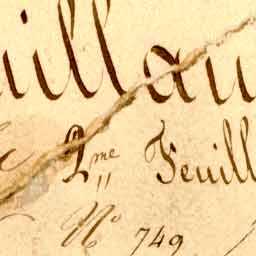 uillau
2me Feuill
No 749